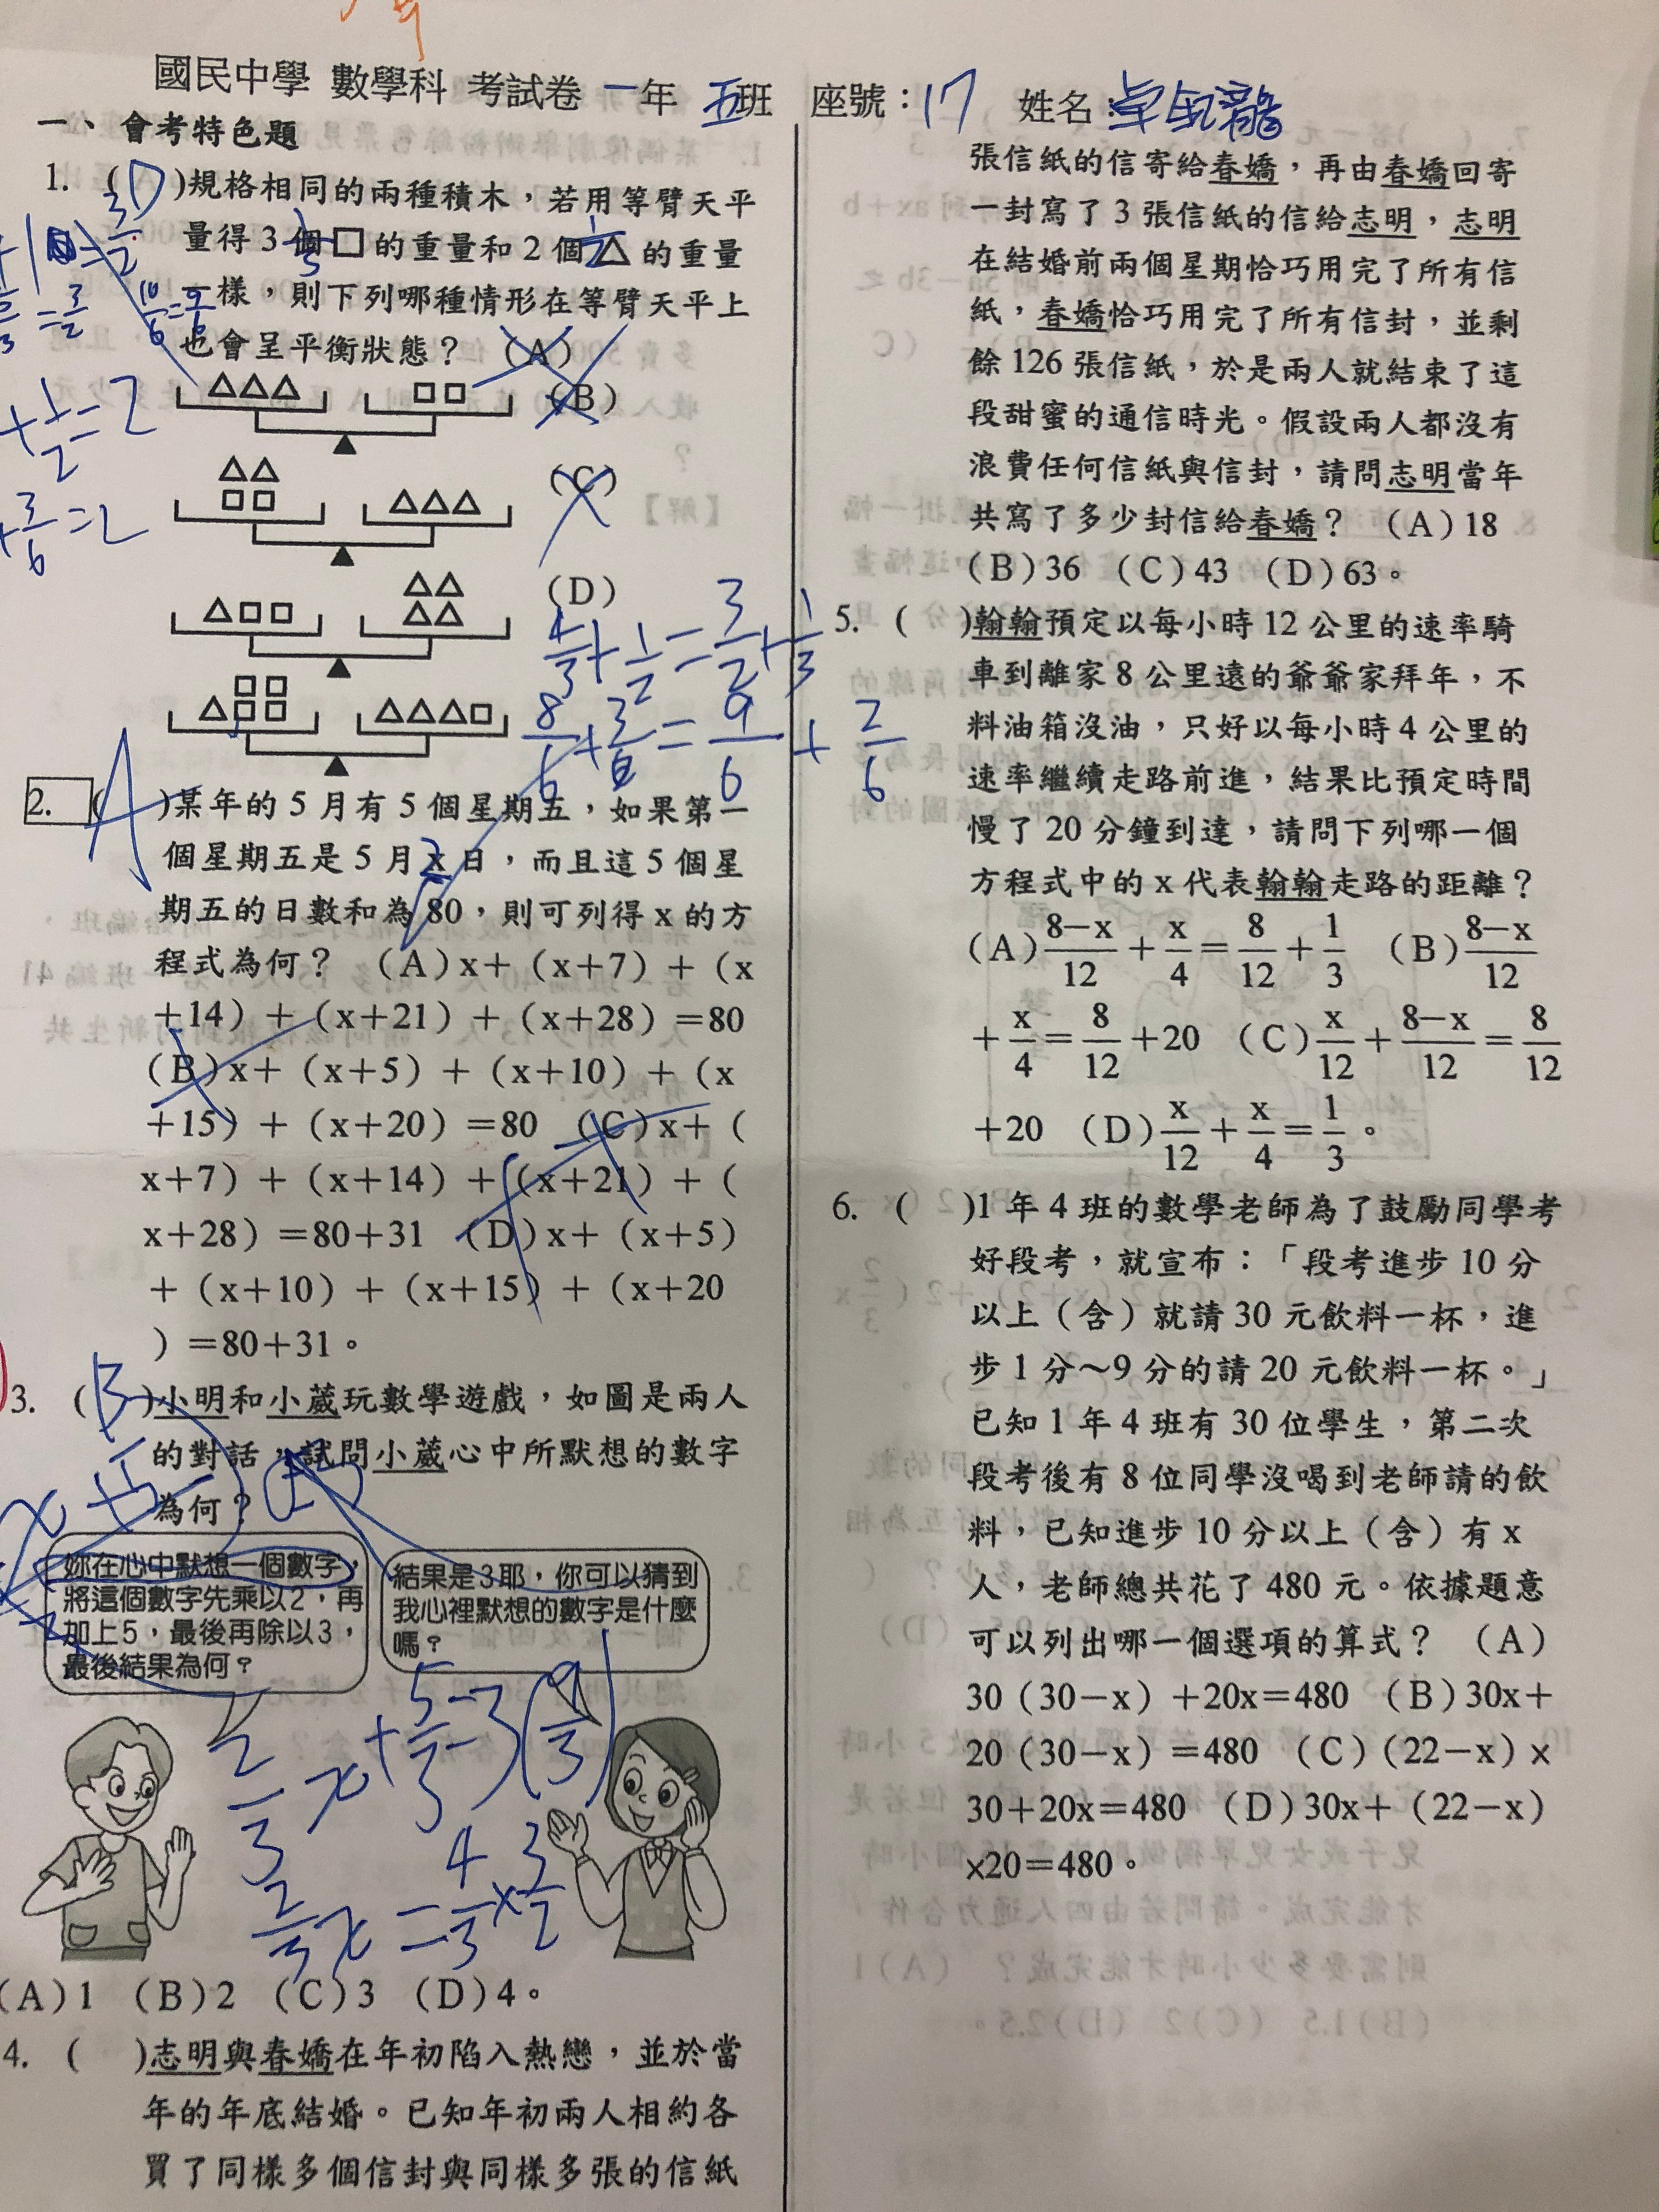 國民中學 數學科 考試卷 一年 五班 座號：17 姓名：
一、會考特色題
1. (D)規格相同的兩種積木，若用等臂天平
量得3個□的重量和2個△的重量
一樣，則下列哪種情形在等臂天平上
也會呈平衡狀態？ (A)
(B)
(C)
(D)
4/3+1/2=3/2+1/3
8/6+3/6=9/6+2/6
2. (A)某年的5月有5個星期五，如果第一
個星期五是5月x日，而且這5個星
期五的日數和為80，則可列得x的方
程式為何？ (A)x+(x+7)+(x
+14)+(x+21)+(x+28)=80
(B)x+(x+5)+(x+10)+(x
+15)+(x+20)=80 (C)x+(
x+7)+(x+14)+(x+21)+(
x+28)=80+31 (D)x+(x+5)
+(x+10)+(x+15)+(x+20
)=80+31。
3. (B)小明和小葳玩數學遊戲，如圖是兩人
的對話，試問小葳心中所默想的數字
為何？
妳在心中默想一個數字，
將這個數字先乘以2，再
加上5，最後再除以3，
最後結果為何？
結果是3耶，你可以猜到
我心裡默想的數字是什麼
嗎？
2/3x+5/3=3(9/3)
2/3x=4/3×3/2
(A)1 (B)2 (C)3 (D)4。
4. ( )志明與春嬌在年初陷入熱戀，並於當
年的年底結婚。已知年初兩人相約各
買了同樣多個信封與同樣多張的信紙
張信紙的信寄給春嬌，再由春嬌回寄
一封寫了3張信紙的信給志明，志明
在結婚前兩個星期恰巧用完了所有信
紙，春嬌恰巧用完了所有信封，並剩
餘126張信紙，於是兩人就結束了這
段甜蜜的通信時光。假設兩人都沒有
浪費任何信紙與信封，請問志明當年
共寫了多少封信給春嬌？ (A)18
(B)36 (C)43 (D)63。
5. ( )翰翰預定以每小時12公里的速率騎
車到離家8公里遠的爺爺家拜年，不
料油箱沒油，只好以每小時4公里的
速率繼續走路前進，結果比預定時間
慢了20分鐘到達，請問下列哪一個
方程式中的x代表翰翰走路的距離？
(A)8−x/12+x/4=8/12+1/3 (B)8−x/12
+x/4=8/12+20 (C)x/12+8−x/12=8/12
+20 (D)x/12+x/4=1/3。
6. ( )1年4班的數學老師為了鼓勵同學考
好段考，就宣布：「段考進步10分
以上(含)就請30元飲料一杯，進
步1分～9分的請20元飲料一杯。」
已知1年4班有30位學生，第二次
段考後有8位同學沒喝到老師請的飲
料，已知進步10分以上(含)有x
人，老師總共花了480元。依據題意
可以列出哪一個選項的算式？ (A)
30(30−x)+20x=480 (B)30x+
20(30−x)=480 (C)(22−x)×
30+20x=480 (D)30x+(22−x)
×20=480。